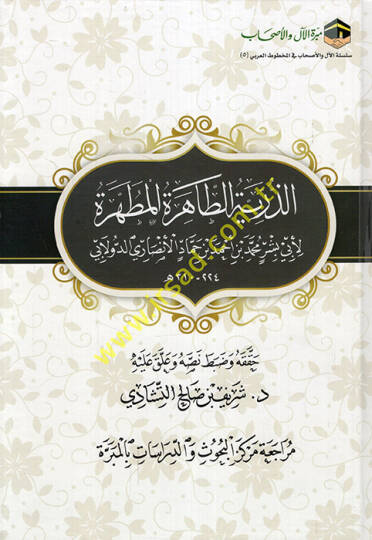 مبرة الآل والأصحاب
سلسلة الآل والأصحاب في المخطوط العربي (٥)
الذرية الطاهرة المطهرة
لأبي بشر محمد بن أحمد بن حماد الأنصاري الدولابي
٢٢٤-٣١٠هـ
حققه وضبط نصه وعلق عليه
د. شريف بن صالح التشادي
مراجعة مركز البحوث والدراسات بالمبرة
irsad.com.tr